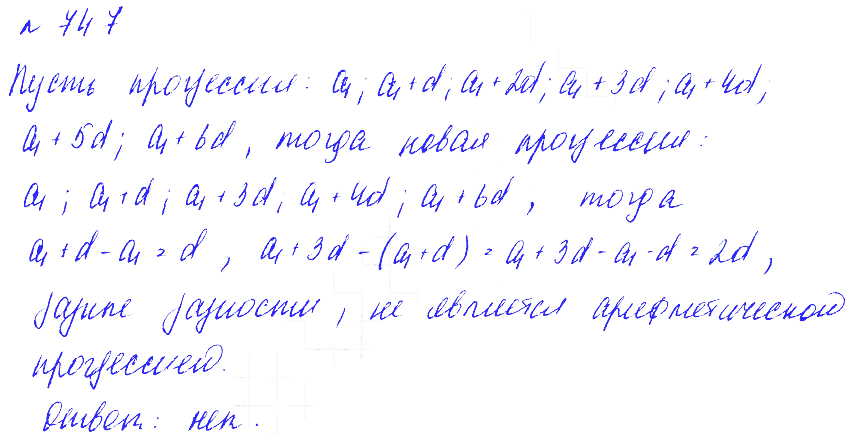 n 747
Пусть прогрессия: a₁; a₁+d; a₁+2d; a₁+3d; a₁+4d,
a₁+5d; a₁+6d, тогда новая прогрессия:
a₁; a₁+d; a₁+3d; a₁+4d; a₁+6d, тогда
a₁+d-a₁=d, a₁+3d-(a₁+d)=a₁+3d-a₁-d=2d,
разные разности, не является арифметической
прогрессией.
Ответ: нет.